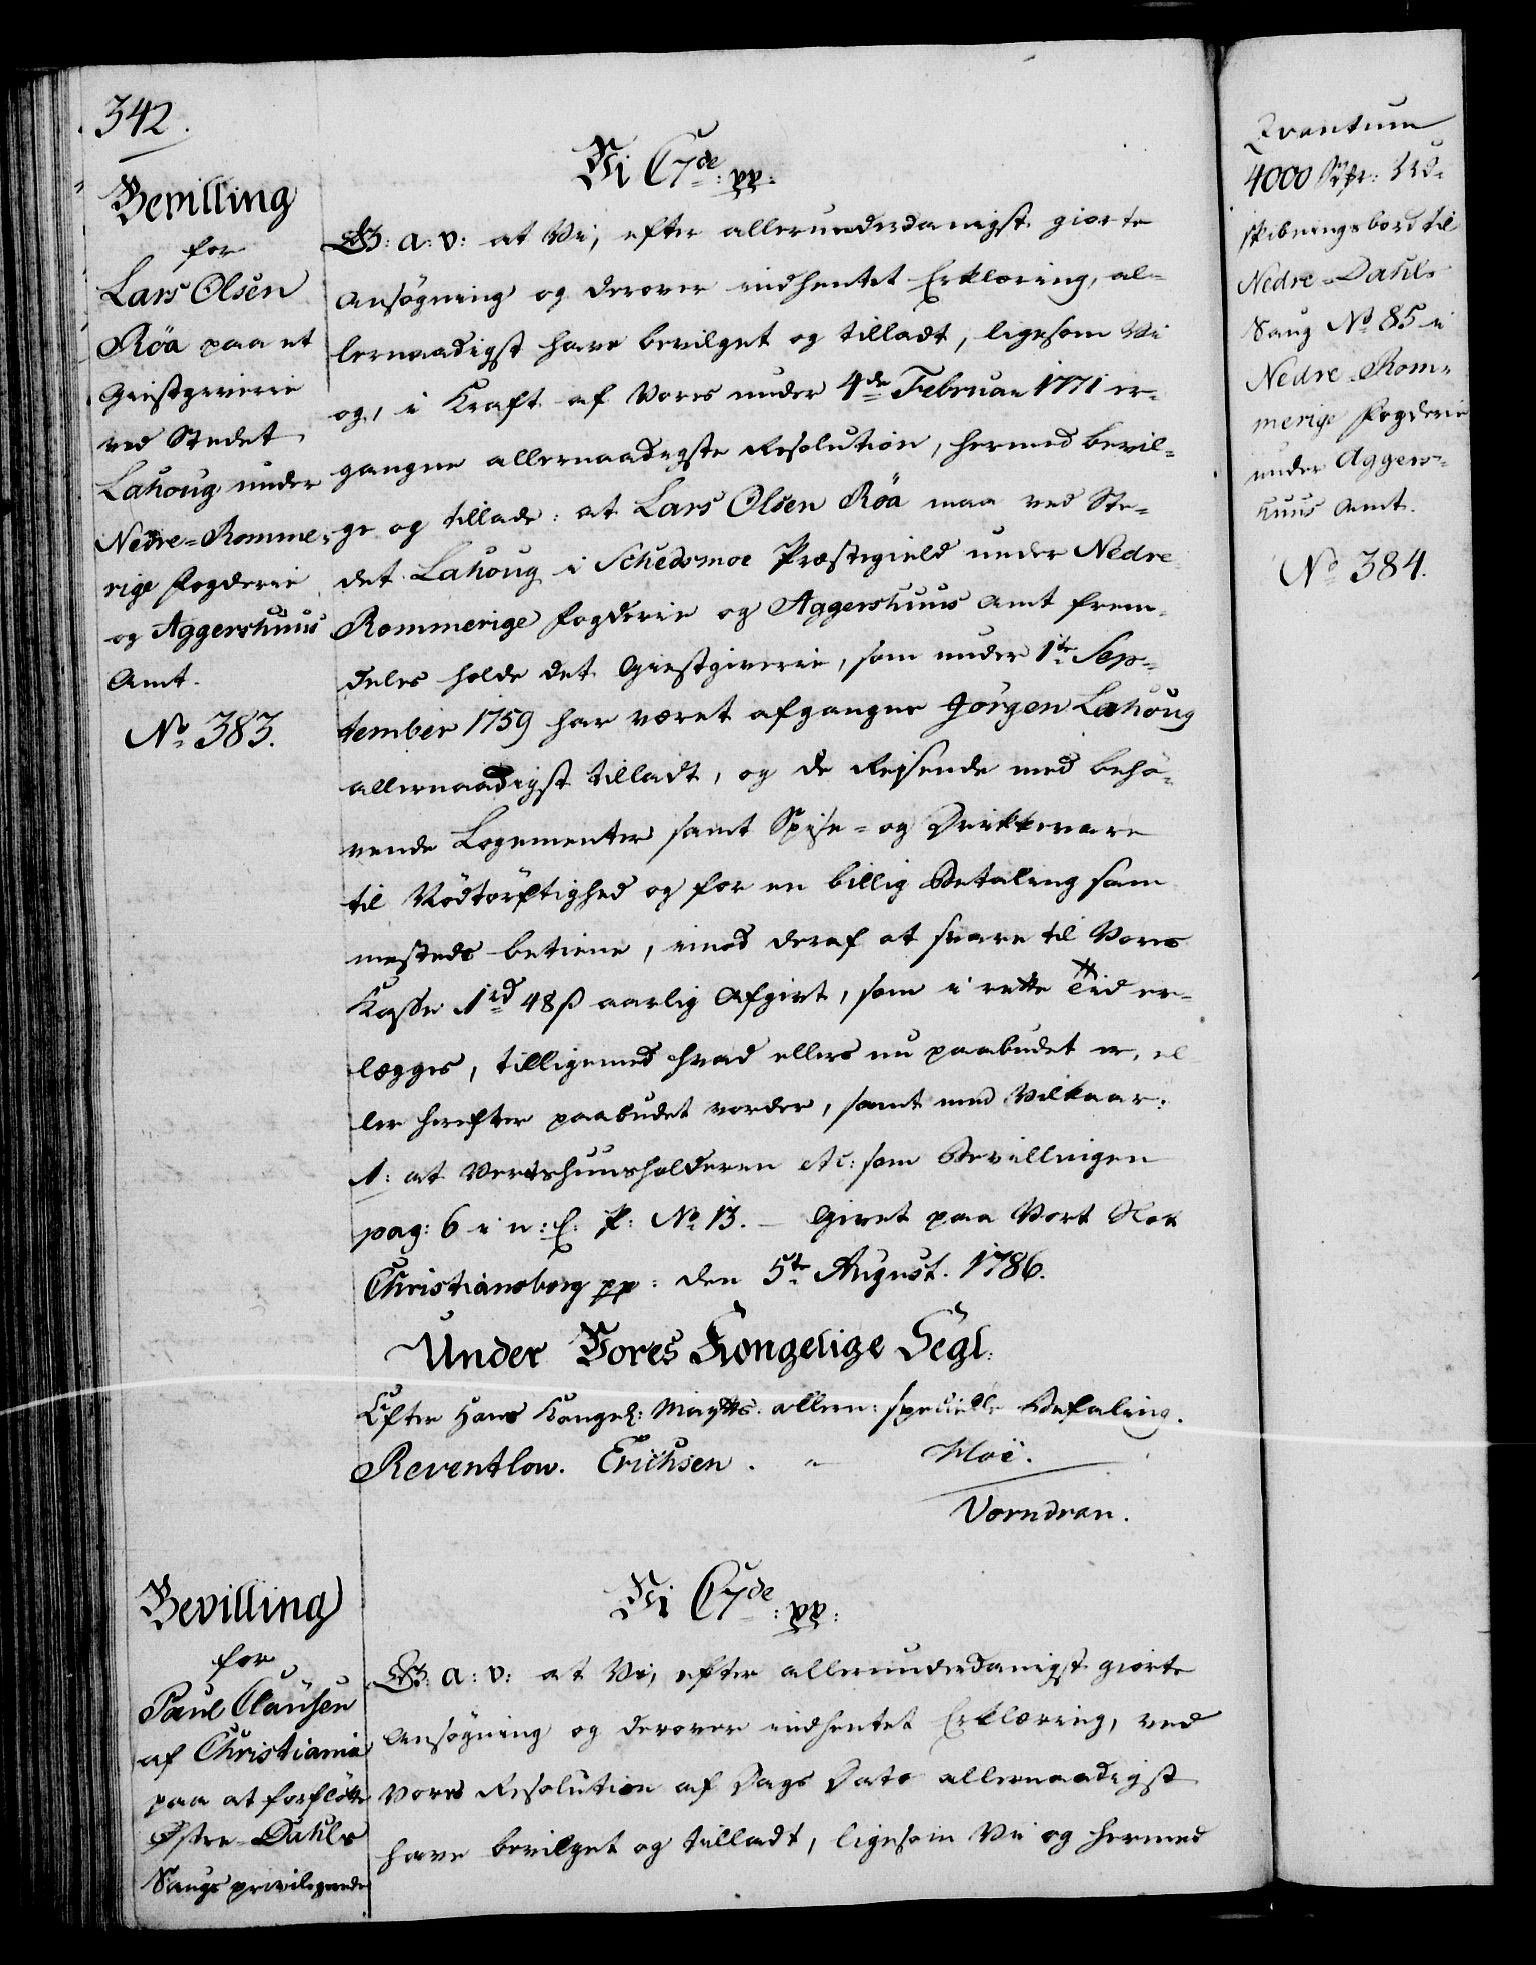 342.
Bevilling
for
Lars Olsen
Röa paa et
Giestgiverie
ved Stedet
Lahoug under
Nedre-Romme-
rige Fogderie
og Aggershuus
Amt.
No 383.
Vi C7de: pp:
G: a: v: at Vi, efter allerunderdanigst giorte
Ansøgning og derover indhentet Erklæring, al-
lernaadigst have bevilget og tilladt, ligesom Vi
og, i Kraft af Vores under 4de Februar 1771 er-
gangne allernaadigste Resolution, hermed bevil-
ge og tillade: at Lars Olsen Röa maa ved Ste-
det Lahoug i Schedsmoe Præstegield under Nedre
Rommerige Fogderie og Aggershuus Amt frem-
deles holde det Giestgiverie, som under 1te Sep-
tember 1759 har været afgangne Jörgen Lahoug
allernaadigst tilladt, og de Reisende med behö-
vende Logementer samt Spise- og Drikkevare
til Nödtörftighed og for en billig Betaling sam-
mesteds betiene, imod deraf at svare til Vores
Kasse 1rd 48ß aarlig Afgivt, som i rette Tid er-
lægges, tilligemed hvad ellers nu paabudet er, el-
ler herefter paabudet vorder, samt med Vilkaar:
1: at Vertshuusholderen etc: som Bevillingen
pag: 6 i n: E: P: No 13. - Givet paa Vort Slot
Christiansborg pp: den 5te August. 1786.
Under Vores Kongelige Segl.
Efter Hans Kongel: Maytts. allern: specielle Befaling.
Reventlow. Erichsen. - Moe.
Vorndran.
Bevilling
for
Paul Clausen
af Christiania
paa at forfløtte
Østre-Dahls
Saugs privilegerede
Vi C7de: pp:
G: a: v: at Vi, efter allerunderdanigst giorte
Ansøgning og derover indhentet Erklæring, ved
Vores Resolution af Dags Dato allernaadigst
have bevilget og tilladt, ligesom Vi og hermed
Qvantum
4000 Ud-
skibningsbord til
Nedre-Dahls
Saug No 85 i
Nedre-Rom-
merige Fogderie
under Aggers-
huus Amt.
No 384.